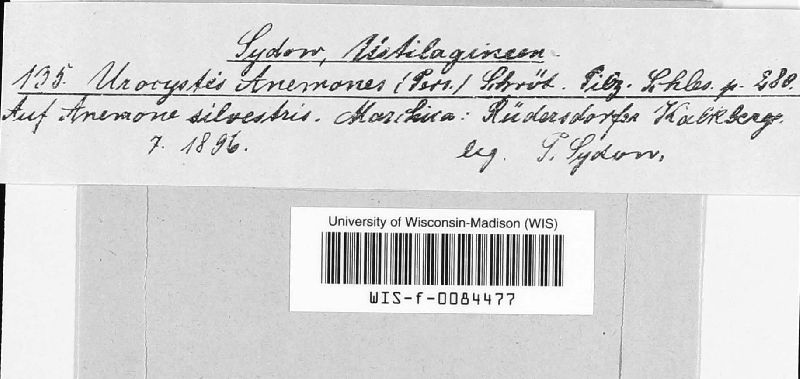 Sydow, Ustilagineen
135. Urocystis Anemones (Pers.) Schröt. Pilz. Schles. p. 288.
Auf Anemone silvestris. Marchica: Rüdersdorfer Kalkberge.
7. 1896. leg. P. Sydow.
University of Wisconsin-Madison (WIS)
WIS-f-0084477